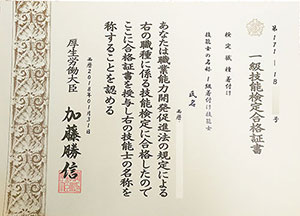 第171-18 号
一級技能検定合格証書
検定職種着付け
技能士の名称 1級着付け技能士
氏名
西暦
あなたは職業能力開発促進法の規定による
右の職種に係る技能検定に合格したので
ここに合格証書を授与し右の技能士の名称を
称することを認める
西暦2018年01月31日
厚生労働大臣 加藤勝信